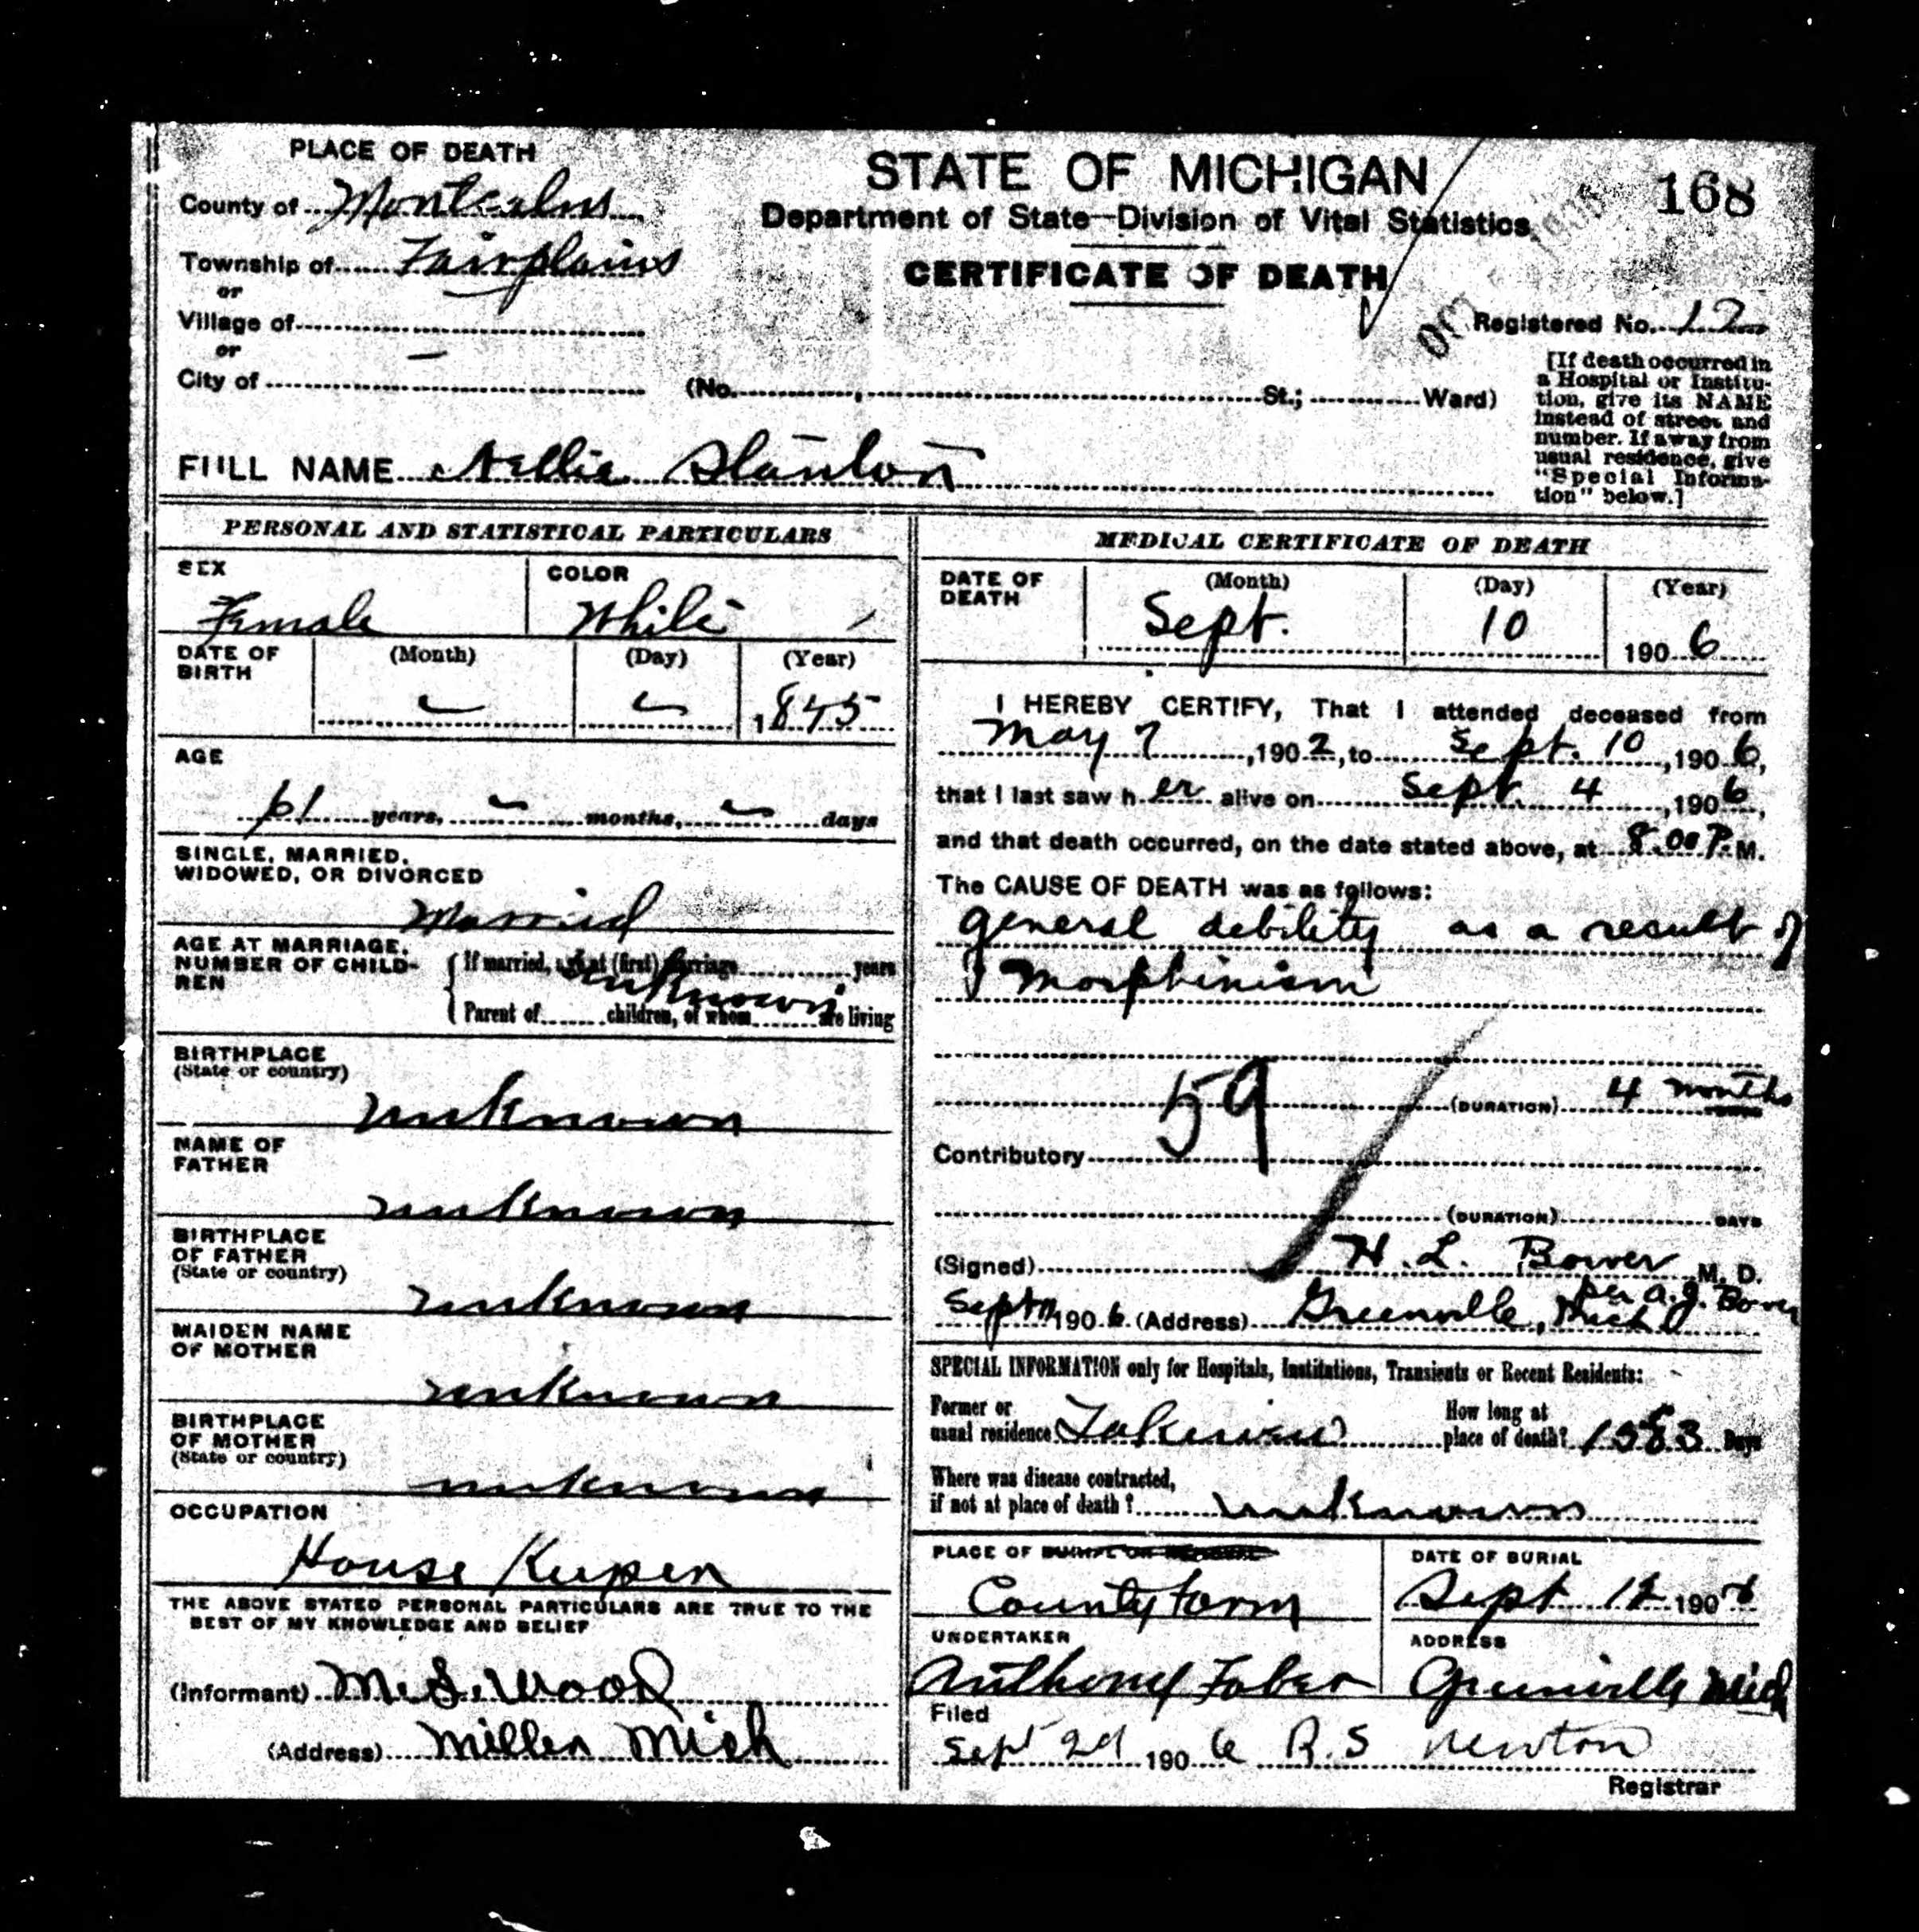 PLACE OF DEATH
County of Montcalm
Township of Fairplains
or
Village of
or
City of
STATE OF MICHIGAN
Department of State—Division of Vital Statistics
CERTIFICATE OF DEATH
168
Registered No. 12
(No. , St.; Ward)
[If death occurred in
a Hospital or Institu-
tion, give its NAME
instead of street and
number. If away from
usual residence, give
"Special Informa-
tion" below.]
FULL NAME Nellie Stanton
PERSONAL AND STATISTICAL PARTICULARS
SEX
Female
COLOR
White
DATE OF
BIRTH
(Month) (Day) (Year)
1845
AGE
61 years, months, days
SINGLE, MARRIED,
WIDOWED, OR DIVORCED
Married
AGE AT MARRIAGE,
NUMBER OF CHILD-
REN
If married, age at (first) marriage years
unknown
Parent of children, of whom are living
BIRTHPLACE
(State or country)
unknown
NAME OF
FATHER
unknown
BIRTHPLACE
OF FATHER
(State or country)
unknown
MAIDEN NAME
OF MOTHER
unknown
BIRTHPLACE
OF MOTHER
(State or country)
unknown
OCCUPATION
House Keeper
THE ABOVE STATED PERSONAL PARTICULARS ARE TRUE TO THE
BEST OF MY KNOWLEDGE AND BELIEF
(Informant) M. S. Wood
(Address) Miller Mich
MEDICAL CERTIFICATE OF DEATH
DATE OF
DEATH
(Month) (Day) (Year)
Sept. 10 1906
I HEREBY CERTIFY, That I attended deceased from
May 7, 1902, to Sept. 10, 1906,
that I last saw her alive on Sept. 4, 1906,
and that death occurred, on the date stated above, at 8.00 P. M.
The CAUSE OF DEATH was as follows:
general debility as a result of
Morphinism
59
(DURATION) 4 months
Contributory
(DURATION) DAYS
(Signed) H. L. Bower M. D.
per A. J. Bower
Sept 1906 (Address) Greenville, Mich
SPECIAL INFORMATION only for Hospitals, Institutions, Transients or Recent Residents:
Former or
usual residence
How long at
place of death? 1583 Days
Where was disease contracted,
if not at place of death? unknown
PLACE OF BURIAL OR REMOVAL
County Farm
DATE OF BURIAL
Sept 12 1906
UNDERTAKER
Anthony Faber
ADDRESS
Greenville Mich
Filed
Sept 29 1906 R. S Newton
Registrar